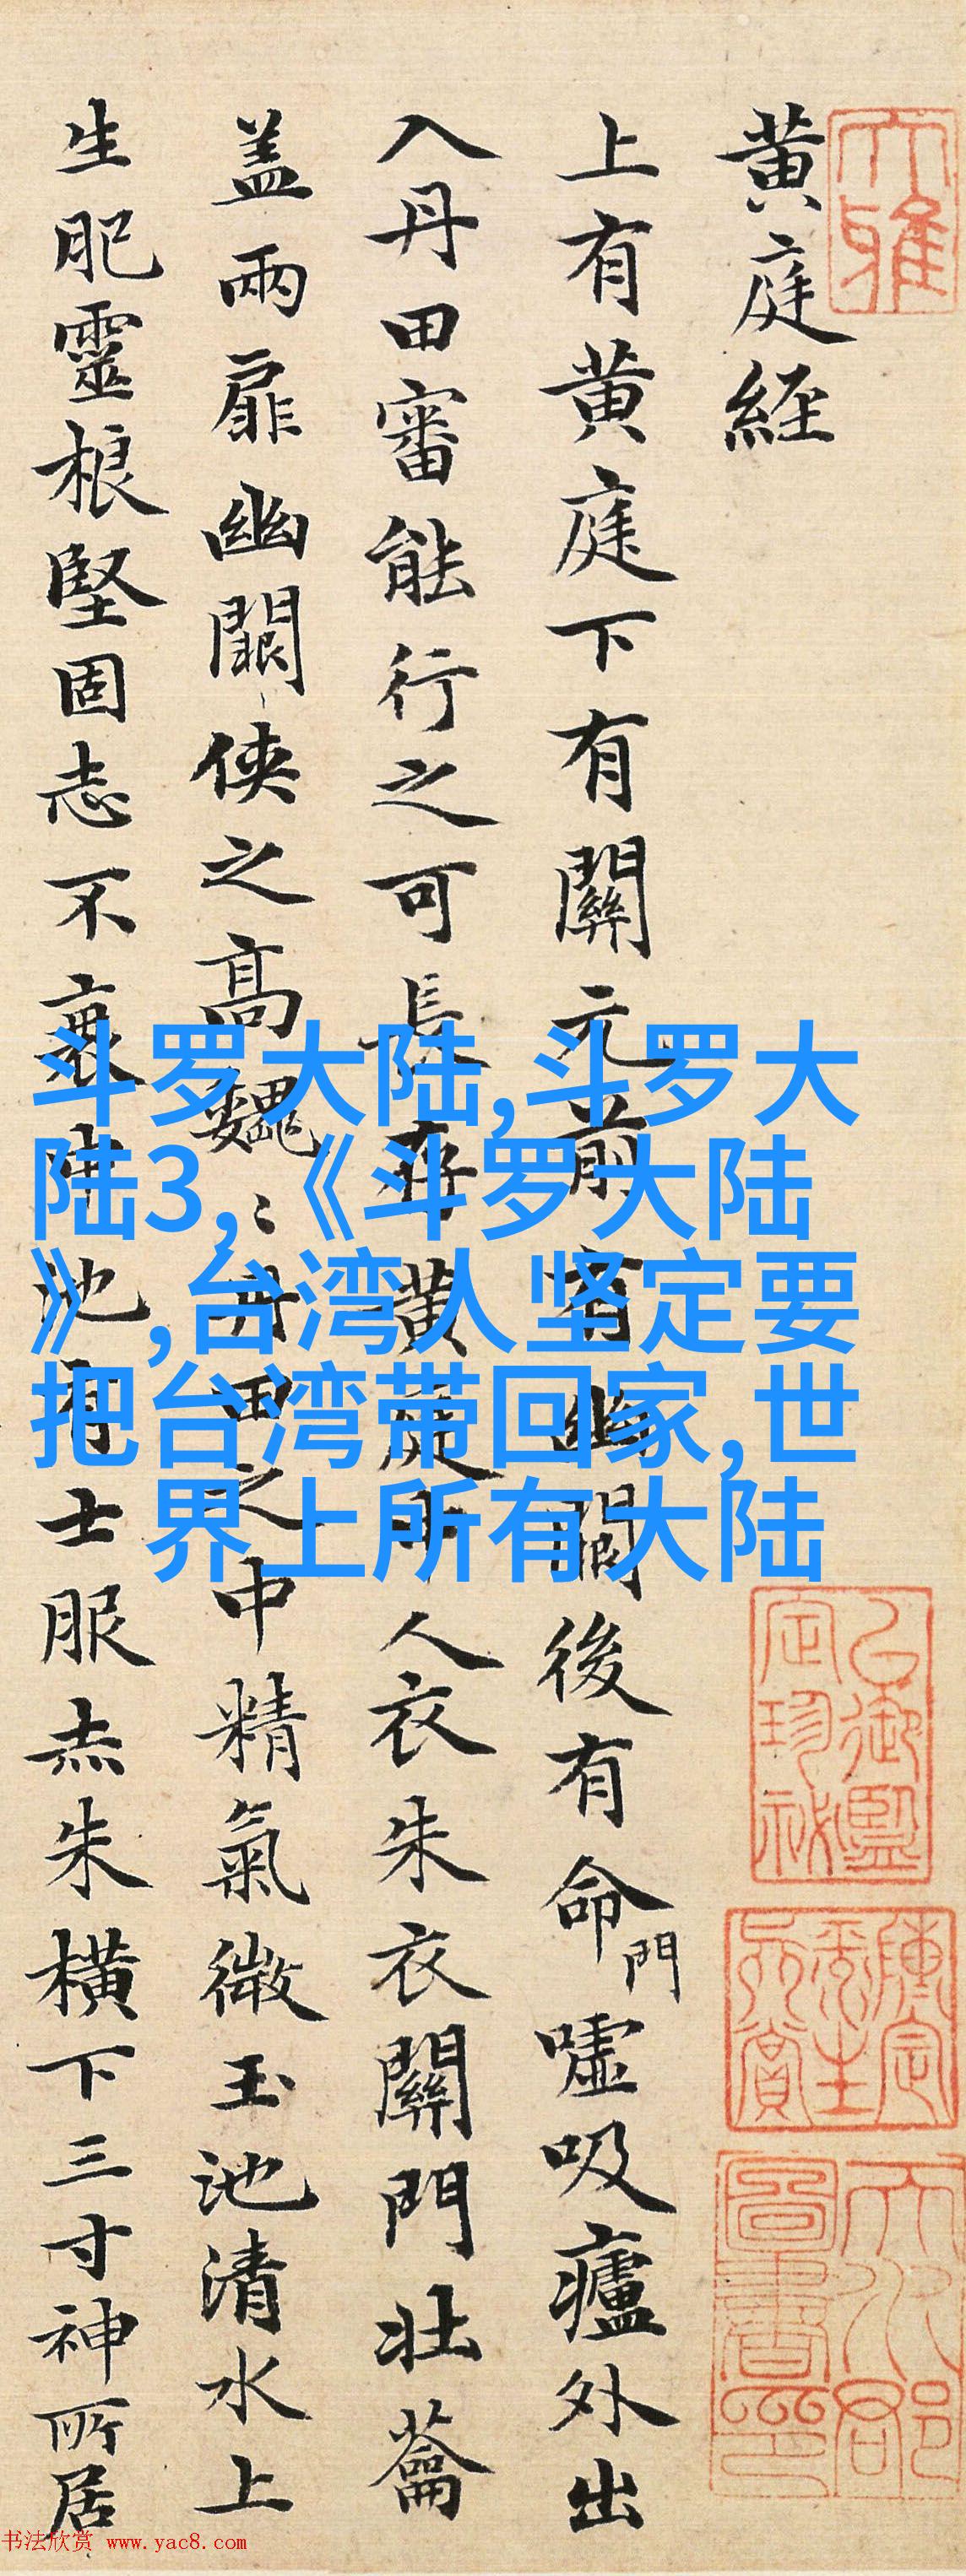 黄庭經
上有黄庭下有關元前有幽闕後有命門噓吸廬外出
入丹田審能行之可長存黄庭中人衣朱衣關門壯蘥
盖兩扉幽闕侠之高巍丹田之中精氣微玉池清水上
生肥靈根堅固志不衰中池有士服赤朱横下三寸神所居
斗罗大陆,斗罗大
陆3,《斗罗大陆
》,台湾人坚定要
把台湾带回家,世
界上所有大陆
书法欣赏 www.yac8.com